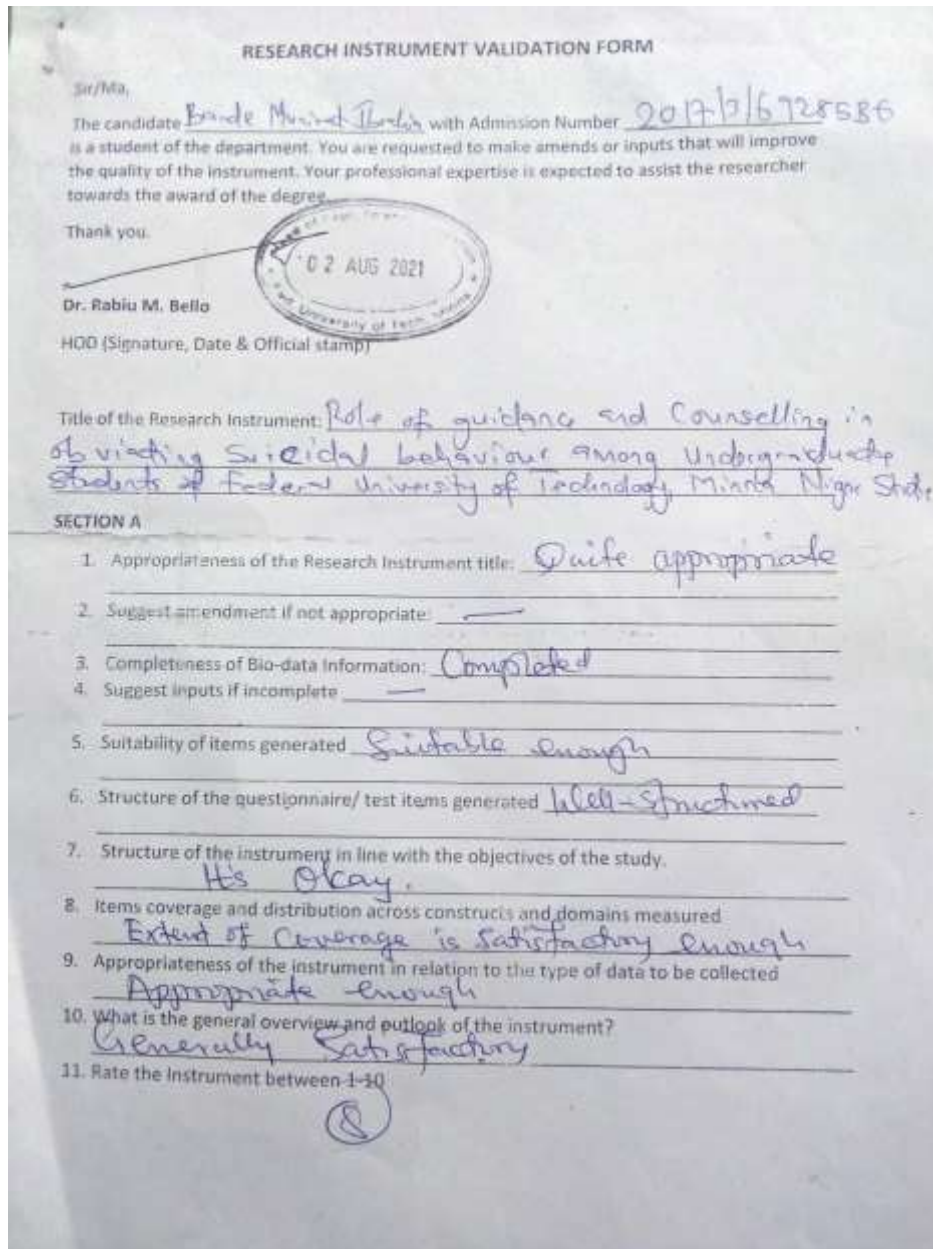 RESEARCH INSTRUMENT VALIDATION FORM
Sir/Ma,
The candidate with Admission Number
is a student of the department. You are requested to make amends or inputs that will improve
the quality of the instrument. Your professional expertise is expected to assist the researcher
towards the award of the degree.
Thank you.
02 AUG 2021
University of Tech. Minna
Dr. Rabiu M. Bello
HOD (Signature, Date & Official stamp)
Title of the Research Instrument: Role of guidance and Counselling in
obviating Suicidal behaviour among Undergraduate
Students of Federal University of Technology Minna Niger State
SECTION A
1. Appropriateness of the Research Instrument title: Quite appropriate
2. Suggest amendment if not appropriate: —
3. Completeness of Bio-data Information: Completed
4. Suggest inputs if incomplete —
5. Suitability of items generated Suitable enough
6. Structure of the questionnaire/ test items generated Well-Structured
7. Structure of the instrument in line with the objectives of the study.
It's Okay.
8. Items coverage and distribution across constructs and domains measured
Extent of Coverage is Satisfactory enough
9. Appropriateness of the instrument in relation to the type of data to be collected
Appropriate enough
10. What is the general overview and outlook of the instrument?
Generally Satisfactory
11. Rate the Instrument between 1-10
8